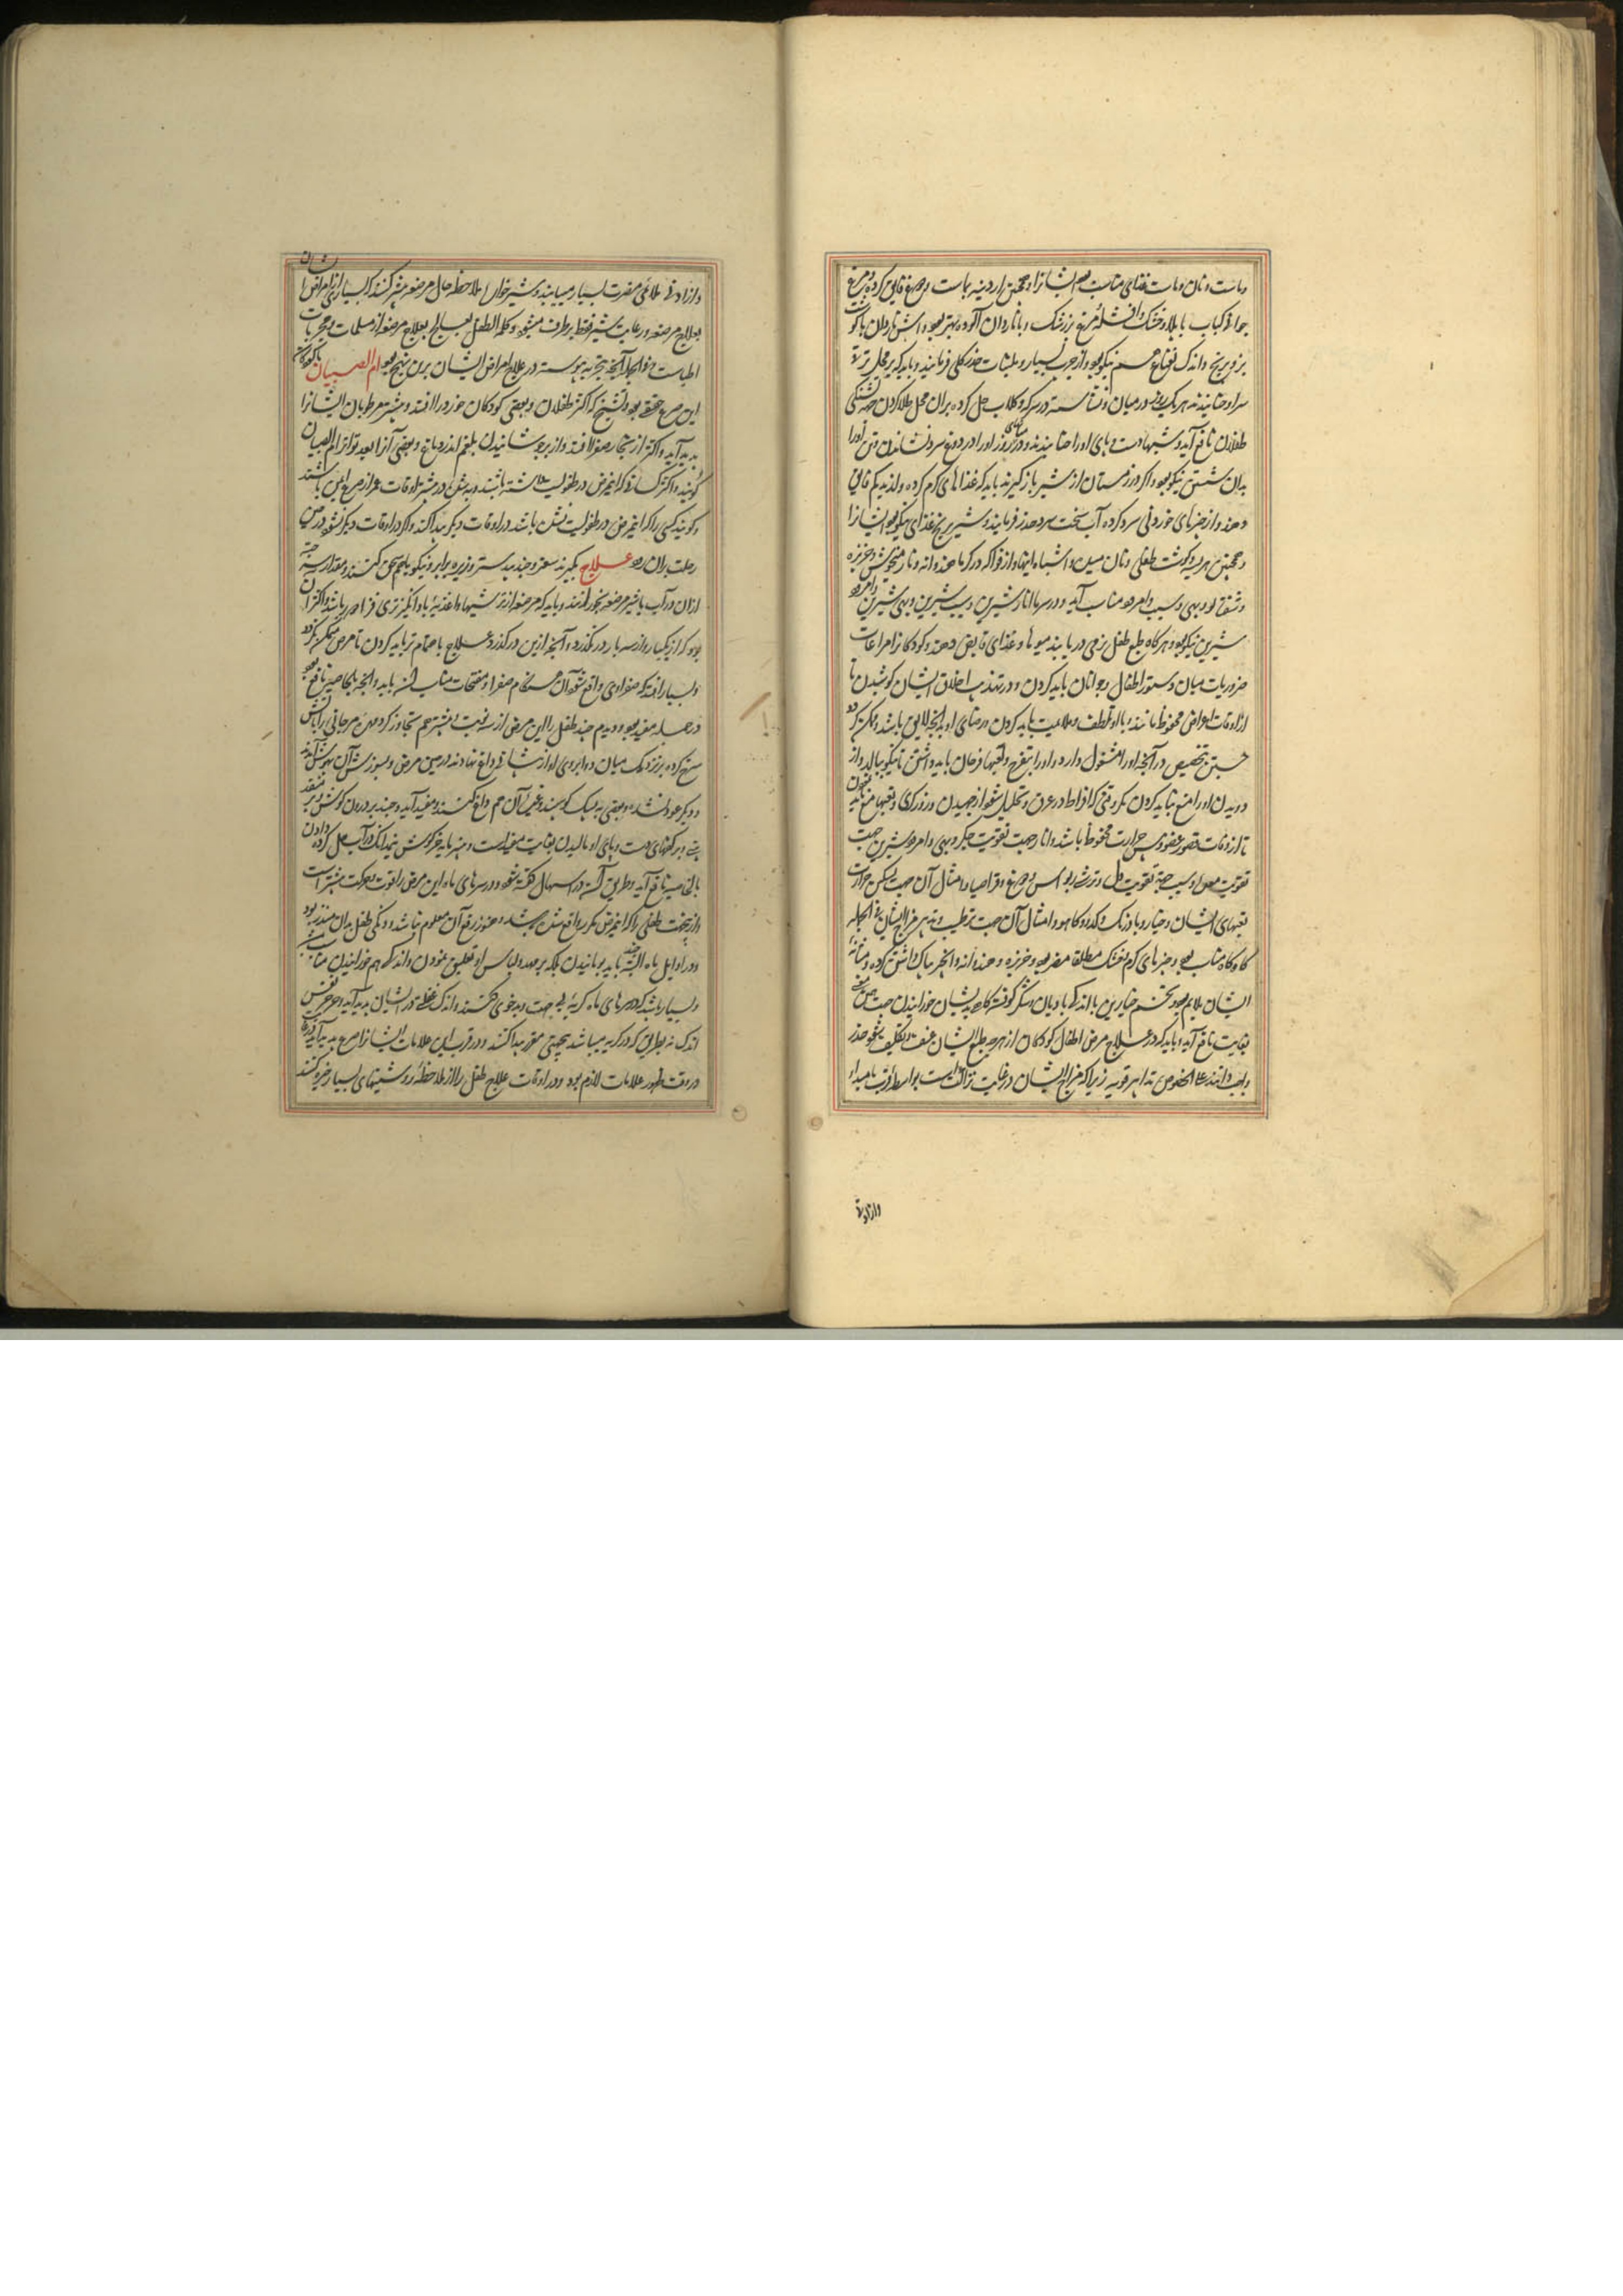 وماست و نان و مات غذای مناسب بود ایشانرا و همچنین آردینه بماست و مرغ قاق کرده و مرغ
جوانه کباب با پلاو خشک و افشلهٔ مرغ بزرشک و با ناردان آلوده بهتر بود و آش ناردان با گوشت
بز و برنج و اندک نعناع هم نیکو بود و از چرب بسیار و ملینات حذر کلی فرمایند و باید که بر محل
سر او حنا بندند هر یک روز در میان و نشاسته در سرکه و گلاب حل کرده بر آن محل طلا کردن جهت تشنگی
طفلان نافع آید و شبها دست و پای او را حنا بندند و در روز او را در دوغ سرد نشاندن و تن او را
بدان شستن نیکو بود و اگر در زمستان از شیر باز گیرند باید که غذاهای گرم کرده و لذیذ کم
دهند و از چیزهای خوردنی سرد کرده آب سخت سرد حذر فرمایند و شیر برنج غذای نیکو بود ایشانرا
و همچنین هریسه گوشت طفلی و نان میده و اشباه اینها و از فواکه در گرما هندوانه و نار میخوش و خربزه
و شفتالو و بهی و سیب و امرود مناسب آید و در سرما انار شیرین و سیب شیرین و بهی شیرین و امرود
شیرین نیکو بود و هر گاه طبع طفل نرمی دریابند میوها و غذای قابض دهند و کودکانرا مراعات
ضروریات میان دستور اطفال و جوانان باید کردن و در تهذیب اخلاق ایشان کوشیدن تا
از آفات اعراض محفوظ مانند و با او تلطف و ملاعبت باید کردن و رضای او بدانچه لایق باشد
جستن بتخصیص در آنچه او را مشغول دارد و او را بتفرج و لعبها فرحان باید داشتن تا نیکو ببالد و از
دویدن او را منع نباید کردن مگر وقتی که افراط در عرق و تحلیل شود از جهیدن و زورگری و تعبها منع باید
تا از آفات قصور عضو و حس حرارت محفوظ باشد و انار جهت تقویت جگر و بهی و امرود شیرین جهت
تقویت معده و سیب جهة تقویت دل و ترشی و مرغ و قراصیا و امثال آن جهت تسکین حرارت
تبهای ایشان و خیار و بادرنگ و کدو و کاهو و امثال آن جهت ترطیب و تدبیر مزاج ایشان فی الجمله
گاه گاه مناسب بود و چیزهای گرم خشک مطلقا مضر بود و خربزه و هندوانه و انجیر پاک داشتن گرده و مثانه
ایشان ملایم بود و تخم خیارین با اندکی بادیان و شکر کوفته گاهی بدیشان خوراندن جهت
بغایت نافع آید و باید که در علاج مرض اطفال و کودکان از هر چه طبع ایشان عنف و تکلیف شود حذر
واجب دانند علی الخصوص تدابیر قویه زیرا که مزاج ایشان در غایت نزاکت است بواسطهٔ قرب بمبداء
وازادنی
و از ادنی ملاقی مضرت بسیار میبابند و شیرخوار را ملاحظه حال مرضعه بیشتر کنند که بسیاری از امراض ایشان
بعلاج مرضعه و رعایت شیر فقط برطرف میشود و کلمه الطفل یعالج بعلاج مرضعه از مسلمات و مجربات
اطباست و فی الجمله آنچه بتجربه پیوسته در علاج امراض ایشان برین نهج بود ام الصبیان
این صرع حقیقی بود و تشنج که اکثر طفلان و بعضی کودکان خورد را افتد و بیشتر مرطوبان ایشانرا
پدید آید و اکثر از بخار صفرا افتد و از برجوشانیدن بلغم اندر دماغ و بعضی آنرا بعد تواتر ام الصبیان
گویند و اکثر کسانی که این مرض در طفولیت داشته باشند و به شوند در بیشتر اوقات عمر از صرع ایمن باشند
و گویند کسی را که این مرض در طفولیت نشده باشد در اوقات دیگر پیدا کند و اگر در اوقات دیگر نشود در حین
رحلت بدان رود علاج بگیرند سعتر و جندبیدستر و زیره برابر و نیکو باهم سحق کنند و مقدار سه حبه
از آن در آب یا شیر مرضعه بخورانند و باید که مرضعه از ترشیها و اغذیهٔ باد انگیز تری فزا دور باشد و اکثر آن
بود که از یکبار و از سه بار در نگذرد و آنچه ازین در گذرد علاج باهتمام تر باید کردن تا مرض متمکن نگردد
و بسیار افتد که صفراوی واقع شود آن هنگام صفرا و مفتحات مناسب آن باید و آنچه بالخاصیه نافع بود
در هر بار مفید بود و دیدم چند طفل را این مرض از سه نوبت بیشتر هم تجاوز کرد مهرهٔ مرجانی را بآتش
سرخ کرده بر نزدیک میان دو ابروی او از پیشانی داغ نهادند در حین مرض و بسوزش آن بهوش آمدند
و دیگر عود نشد و بعضی به پشک گوسپند و غیر آن هم داغ کنند و مفید آید و جندبیدستر درون گوش و بر منفذ
بینی و بر کفهای دست و پای او مالیدن بغایت مفید است و پنیر مایه خرگوش نیمدانگ در آب حل کرده دادن
بالخاصیه نافع آید و طریق آلت در اسهال گفته شود و در سرهای ماه این مرض را قوت و حرکت بیشتر است
و از بخت طفلی را که این مرض مکرر واقع شده باشد و هنوز رفع آن معلوم نباشد و دلتنگی طفل بدان منذر بود
و در اوایل ماه البته جند باید بویانیدن بلکه بر مهد و لباس او تعلیق نمودن و اندکی هم خورانیدن مناسبست
و بسیار باشد که در سرهای ماه گریه بی جهت و بدخوی کنند و اندک غلظتی در ایشان پدید آید و عسر نفس
اندک نه بطریق که در گریه میباشد بچیزی مقرر پیدا کنند و در قرب این علامات ایشانرا صرع پدید آید
در وقت ظهور علامات لازم بود و در اوقات علاج طفل را از ملاحظهٔ روشنیهای بسیار خیره کننده